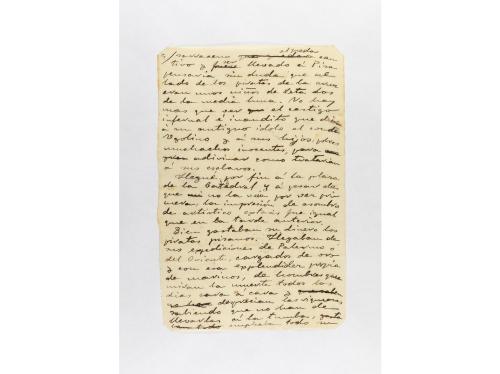 9/ sarraceno al quedar cau-
tivo y ser llevado á Pisa
pensaria sin duda que al
lado de los piratas de la cruz
eran unos niños de teta los
de la media luna. No hay
mas que ver el castigo
infernal é inaudito que dieron
á su antiguo ídolo el conde
Ugolino y á sus hijos, pobres
muchachos inocentes, para
adivinar como tratarian
á sus esclavos.
Llegué por fin á la plaza
de la Catedral, y á pesar de
que no la veia por vez pri-
mera, la impresión de asombro
de artístico extasis fue igual
que en la tarde anterior.
Bien gastaban su dinero los
piratas pisanos. Llegaban de
sus expediciones de Palermo ó
del Oriente, cargados de oro
y con esa esplendidez propia
de marinos, de hombres que
miran la muerte todos los
dias cara á cara y
desprecian las riquezas
sabiendo que no han de
llevarlas á la tumba,
empleaba todo su